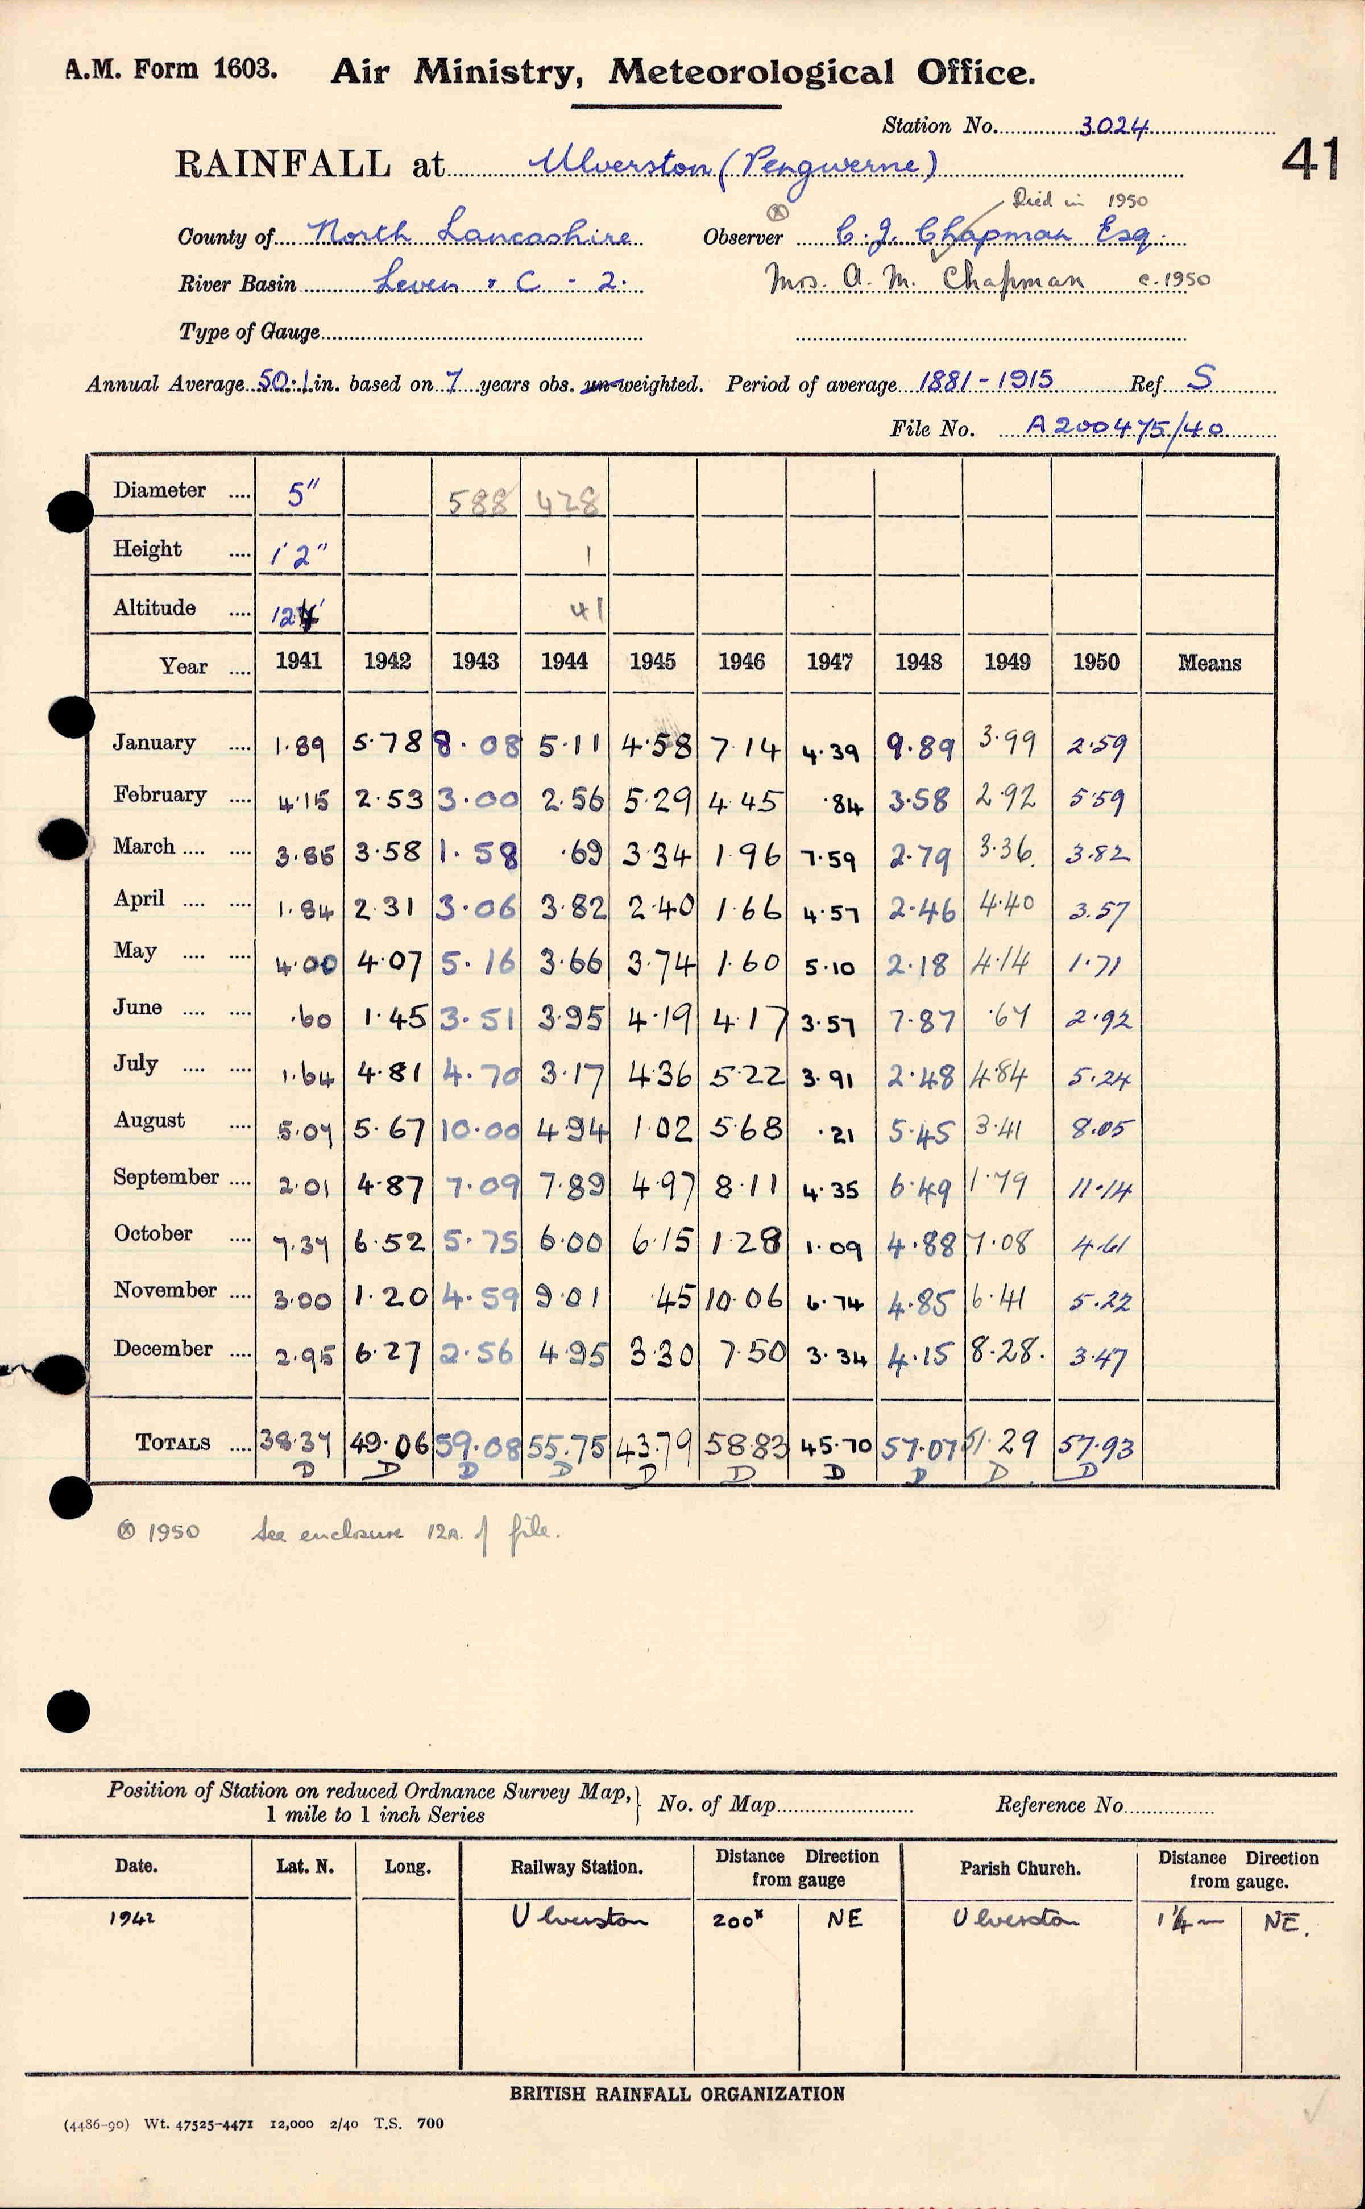 A.M. Form 1603. Air Ministry, Meteorological Office.
Station No. 3024
41
RAINFALL at Ulverston (Pengwerne)
Died in 1950
County of North Lancashire Observer C. J. Chapman Esq.
River Basin Leven & C - 2. Mrs. A. M. Chapman c. 1950
Type of Gauge
Annual Average 50.1 in. based on 7 years obs. un-weighted. Period of average 1881-1915 Ref S
File No. A200475/40
Diameter .... 5" 588 428
Height .... 1' 2" 1
Altitude .... 124' 41
Year .... 1941 1942 1943 1944 1945 1946 1947 1948 1949 1950 Means
January .... 1.89 5.78 8.08 5.11 4.58 7.14 4.39 9.89 3.99 2.59
February .... 4.15 2.53 3.00 2.56 5.29 4.45 .84 3.58 2.92 5.59
March .... .... 3.85 3.58 1.58 .69 3.34 1.96 7.59 2.79 3.36 3.82
April .... .... 1.84 2.31 3.06 3.82 2.40 1.66 4.57 2.46 4.40 3.57
May .... .... 4.00 4.07 5.16 3.66 3.74 1.60 5.10 2.18 4.14 1.71
June .... .... .60 1.45 3.51 3.95 4.19 4.17 3.57 7.87 .67 2.92
July .... .... 1.64 4.81 4.70 3.17 4.36 5.22 3.91 2.48 4.84 5.24
August .... 5.07 5.67 10.00 4.94 1.02 5.68 .21 5.45 3.41 8.05
September .... 2.01 4.87 7.09 7.89 4.97 8.11 4.35 6.49 1.79 11.14
October .... 7.37 6.52 5.75 6.00 6.15 1.28 1.09 4.88 7.08 4.61
November .... 3.00 1.20 4.59 9.01 .45 10.06 6.74 4.85 6.41 5.22
December .... 2.95 6.27 2.56 4.95 3.30 7.50 3.34 4.15 8.28. 3.47
TOTALS .... 38.37 49.06 59.08 55.75 43.79 58.83 45.70 57.07 51.29 57.93
D D D D D D D D D D
⊗ 1950 See enclosure 12A. of file.
Position of Station on reduced Ordnance Survey Map, 1 mile to 1 inch Series No. of Map Reference No.
Date. Lat. N. Long. Railway Station. Distance Direction from gauge Parish Church. Distance Direction from gauge.
1942 Ulverston 200x NE Ulverston 1¼ m NE.
BRITISH RAINFALL ORGANIZATION
(4486-90) Wt. 47525-4471 12,000 2/40 T.S. 700